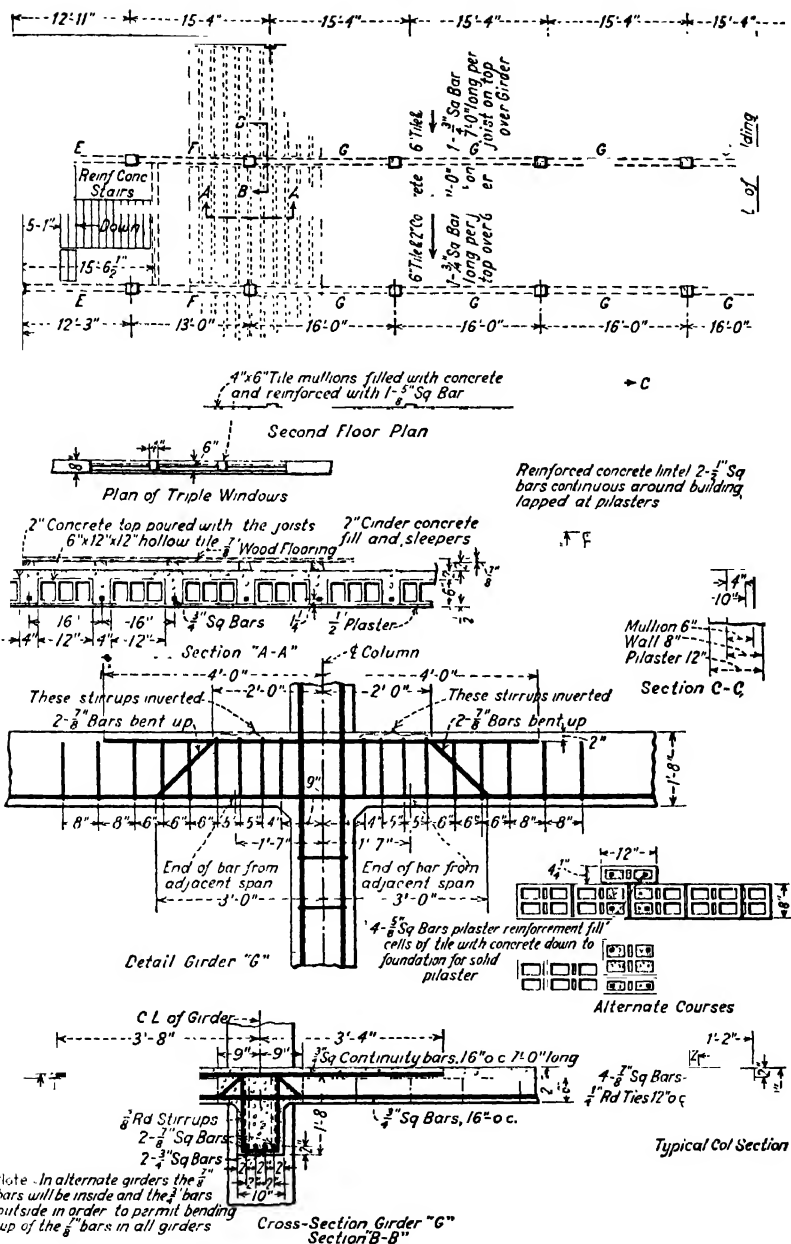 12'-11" 15'-4" 15'-4" 15'-4" 15'-4" 15'-4"
E F G G G
Reinf Conc
Stairs
Down
5'-1"
15'-6½"
A B A
6" Tile &
1-¾" Sq Bar
7'-0" long per
joist on top
over Girder
6" Tile & 2" Co
1-¾" Sq Bar
long per j
top over G
E F G G G
12'-3" 13'-0" 16'-0" 16'-0" 16'-0" 16'-0"
4"x6" Tile mullions filled with concrete
and reinforced with 1-⅝" Sq Bar
C
Second Floor Plan
6"
8"
Plan of Triple Windows
Reinforced concrete lintel 2-½" Sq
bars continuous around building,
lapped at pilasters
2" Concrete top poured with the joists
6"x12"x12" hollow tile ⅞" Wood Flooring
2" Cinder concrete
fill and sleepers
16" 16" ¾" Sq Bars 1¼" ½" Plaster
4" 12" 4" 12"
Section "A-A"
4"
10"
Mullion 6"
Wall 8"
Pilaster 12"
Section C-C
℄ Column
4'-0" 4'-0"
2'-0" 2'-0"
These stirrups inverted These stirrups inverted
2-⅞" Bars bent up 2-⅞" Bars bent up
2"
1'-8"
9"
8" 8" 6" 6" 6" 5" 5" 4" 4" 5" 5" 6" 6" 6" 8" 8"
1'-7" 1'-7"
End of bar from
adjacent span
End of bar from
adjacent span
3'-0" 3'-0"
Detail Girder "G"
12"
4¼"
8"
4-⅝" Sq Bars pilaster reinforcement fill
cells of tile with concrete down to
foundation for solid
pilaster
Alternate Courses
C L of Girder
3'-8" 3'-4"
9" 9"
¾" Sq Continuity bars, 16" o c 7'-0" long
⅜ Rd Stirrups
2-⅞" Sq Bars
2-¾" Sq Bars
1'-8"
¾" Sq Bars, 16" o c.
2 2 2 2
10"
1'-2"
2"
4-⅞" Sq Bars
¼" Rd Ties 12" o c
Typical Col Section
Note - In alternate girders the ⅞"
bars will be inside and the ¾" bars
outside in order to permit bending
up of the ⅞" bars in all girders
Cross-Section Girder "G"
Section "B-B"